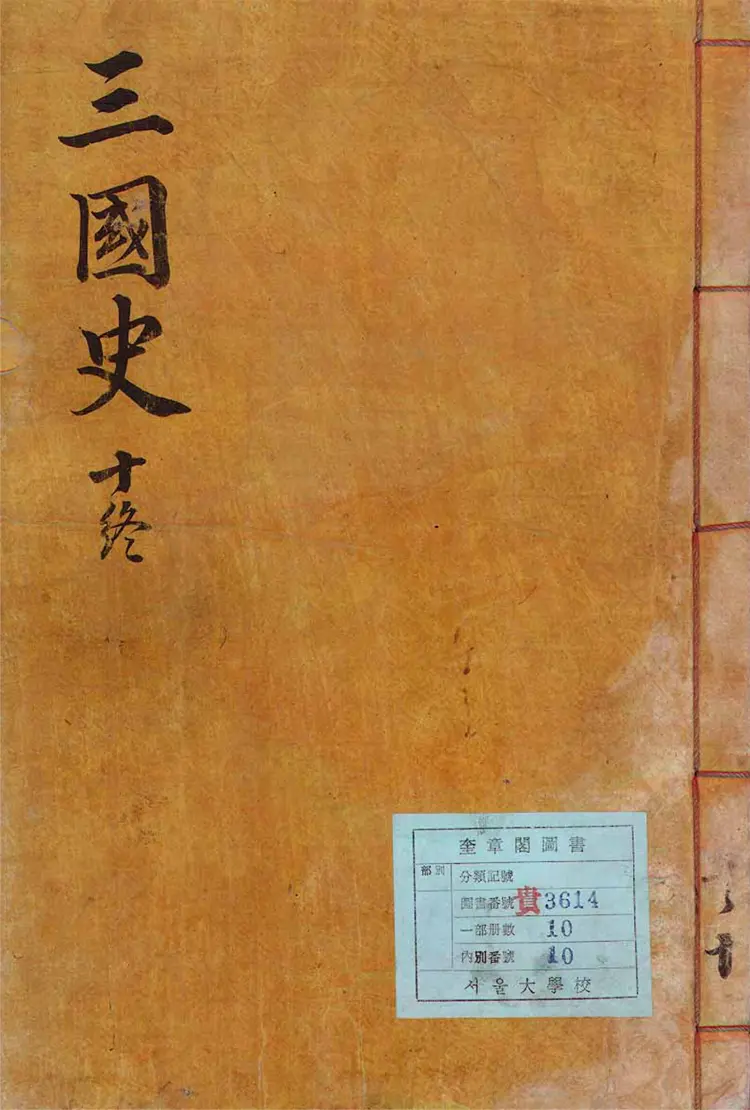 三國史
十終
奎章閣圖書
部別
分類記號
圖書番號 貴3614
一部册數 10
內別番號 10
서울大學校
十